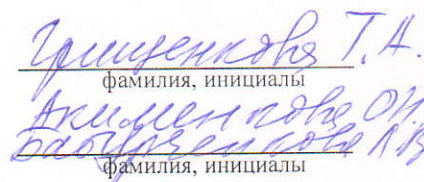 Грищенкова Т.А.
фамилия, инициалы
Акименкова О.Н.
Бабурченкова Л.В
фамилия, инициалы